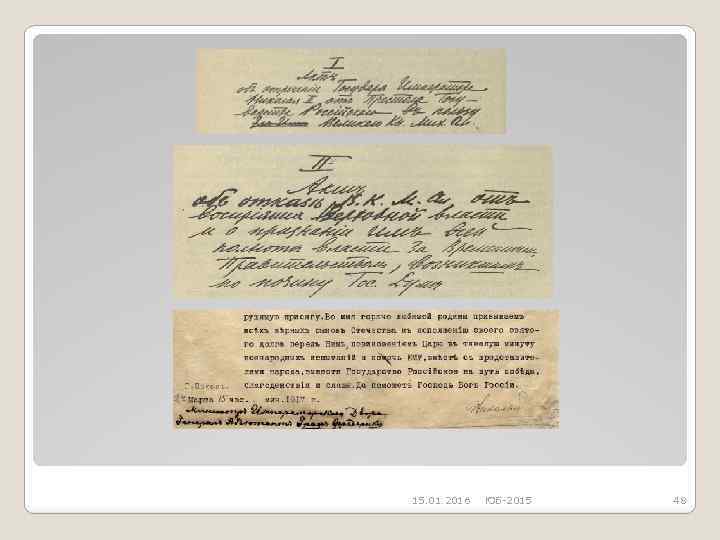 I
Актъ
объ отреченіи Государя Императора
Николая II отъ Престола Госу-
дарства Россійскаго въ пользу
Великаго Кн. Мих. Ал.
II
Актъ
объ отказѣ В. К. М. Ал. отъ
воспріятія Верховной власти
и о признаніи имъ всей
полноты власти за Временнымъ
Правительствомъ, возникшимъ
по почину Гос. Думы
рудимую присягу. Во имя горячо любимой родины призываемъ
всѣхъ вѣрныхъ сыновъ Отечества къ исполненію своего свято-
го долга передъ Нимъ, повиновеніемъ Царю въ тяжелую минуту
всенародныхъ испытаній и помочь ЕМУ, вмѣстѣ съ представите-
лями народа, вывести Государство Россійское на путь побѣды,
благоденствія и славы. Да поможетъ Господь Богъ Россіи.
Г. Псковъ.
Марта 15 час. мин. 1917 г.
Николай
Министръ Императорскаго Двора
Генералъ Адъютантъ Графъ Фредериксъ
15.01.2016 ЮБ-2015 48